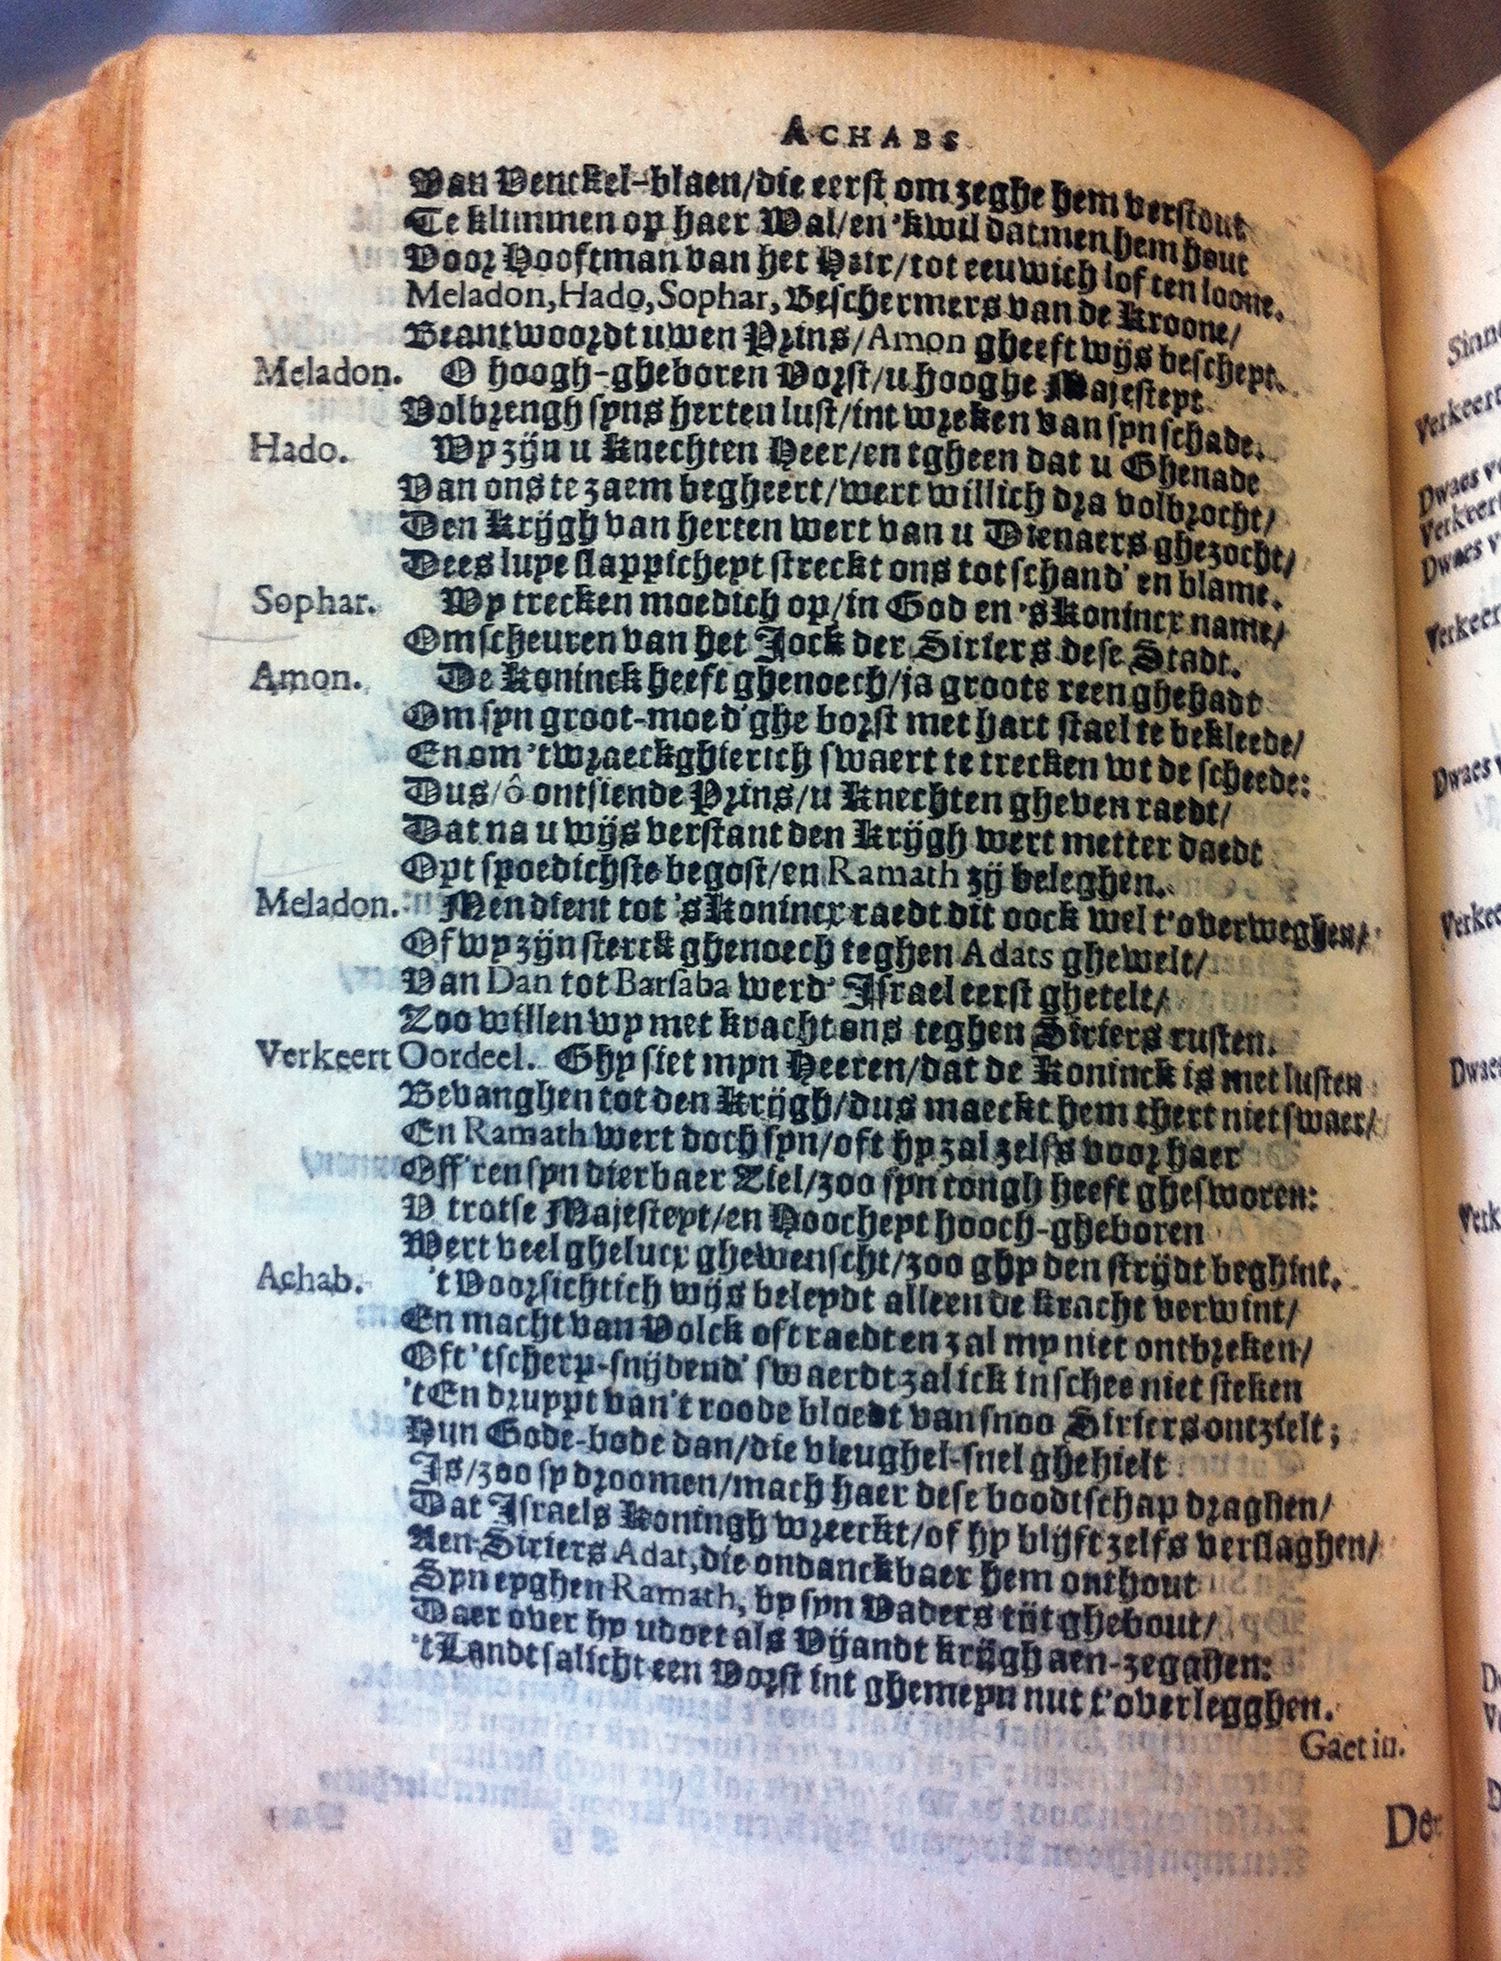 ACHABS
Van Venckel-blaen/die eerst om zeghe hem verstout
Te klimmen op haer Wal/en 'kwil datmen hem hout
Voor Hooftman van het Heir/tot eeuwich lof ten loone.
Meladon, Hado, Sophar, Beschermers van de Kroone/
Beantwoordt uwen Prins/Amon gheeft wijs bescheyt.
Meladon. O hoogh-gheboren Vorst/u hooghe Majesteyt
Volbrengh syns herten lust/int wreken van syn schade.
Hado. Wy zijn u Knechten Heer/en tgheen dat u Ghenade
Van ons te zaem begheert/wert willich dra volbrocht/
Den Krijgh van herten wert van u Dienaers ghezocht/
Dees luye slappicheyt streckt ons tot schand' en blame.
Sophar. Wy trecken moedich op/in God en 's Konincx name/
Om scheuren van het Jock der Siriers dese Stadt.
Amon. De Koninck heeft ghenoech/ja groote reen ghehadt
Om syn groot-moed'ghe borst met hart stael te bekleede/
En om 't wraeckghierich swaert te trecken wt de scheede:
Dus/ô ontsiende Prins/u Knechten gheven raedt/
Dat na u wijs verstant den Krijgh wert metter daedt
Opt spoedichste begost/en Ramath zij beleghen.
Meladon. Men dient tot 's Konincx raedt dit oock wel t'overweghen/
Of wy zijn sterck ghenoech teghen Adats ghewelt/
Van Dan tot Barsaba werd' Israel eerst ghetelt/
Zoo willen wy met kracht ons teghen Siriers rusten.
Verkeert Oordeel. Ghy siet myn Heeren/dat de Koninck is met lusten
Bevanghen tot den Krijgh/dus maeckt hem thert niet swaer/
En Ramath wert doch syn/oft hy zal zelfs voor haer
Off'ren syn dierbaer Ziel/zoo syn tongh heeft ghesworen:
V trotse Majesteyt/en Hoocheyt hooch-gheboren
Wert veel ghelucx ghewenscht/zoo ghy den strijdt beghint.
Achab. 't Voorsichtich wijs beleydt alleen de kracht verwint/
En macht van Volck oft raedt en zal my niet ontbreken/
Oft 'tscherp-snijdend' swaerdt zal ick in schee niet steken
't En druppt van 't roode bloedt van snoo Siriers ontzielt;
Nun Gode-bode dan/die vleughel-snel ghehielt
Is/zoo sy droomen/mach haer dese boodtschap draghen/
Dat Israels Koningh wreeckt/of hy blijft zelfs verslaghen/
Aen Siriers Adat, die ondanckbaer hem onthout
Syn eyghen Ramath, by syn Vaders tijt ghebout/
Daer over hy u doet als Vijandt krijgh aen-zegghen:
't Landt salicht een Vorst int ghemeyn nut t'overlegghen.
Gaet in.
Der